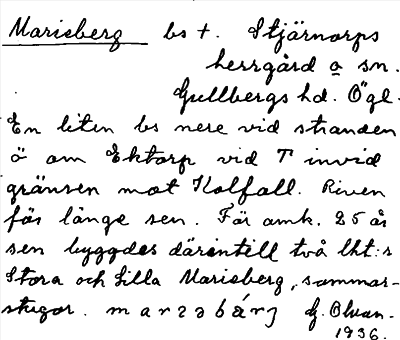 Marieberg bs +. Stjärnorps
herrgård o sn.
Gullbergs hd. Ögl.
En liten bs nere vid stranden
ö om Ektorp vid T invid
gränsen mot Kolfall. Riven
för länge sen. För omk. 25 år
sen byggdes därintill två lht:r
Stora och Lilla Marieberg, sommar-
stugor. marzəbárj G. Olsson.
1936.